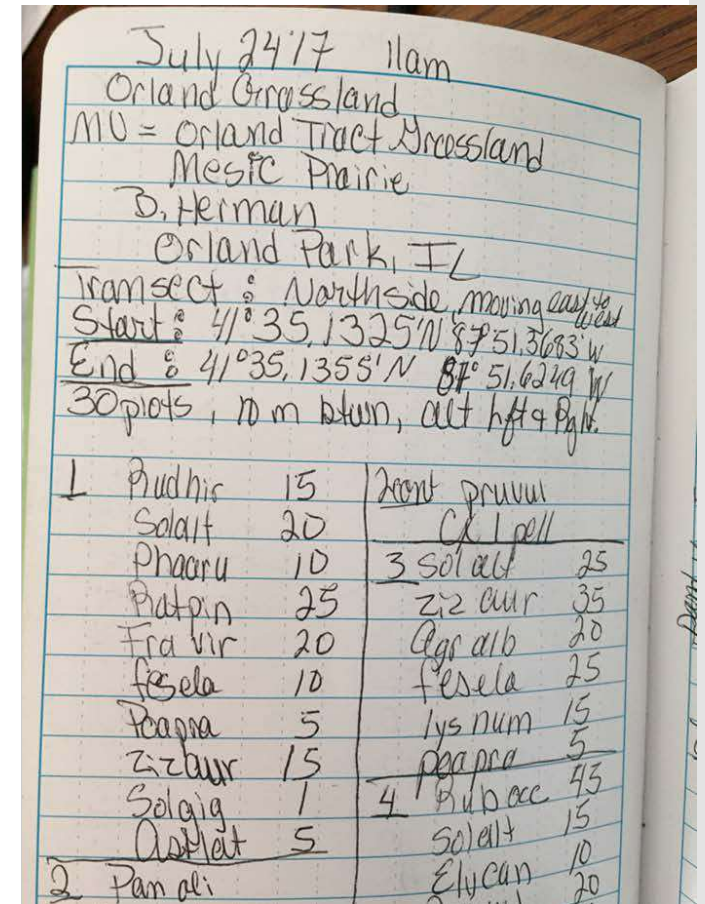 July 24'17 11am
Orland Grassland
MU = Orland Tract Grassland
Mesic Prairie
B. Herman
Orland Park, IL
Transect: Northside, moving east to west
Start: 41°35.1325'N 87°51.3683'W
End: 41°35.1355'N 87°51.6249 W
30 plots, 10 m btwn, alt left & Right.
1 Rudhir 15
Solalt 20
Phaaru 10
Ratpin 25
Fra vir 20
fesela 10
Poapra 5
Zizaur 15
Solgig 1
5
2 Pan
2cont pruvul
3 Sol alt 25
Ziz aur 35
Agr alb 20
fesela 25
lys num 15
poapra 5
4 Rub occ 45
Solalt 15
Ely can 10
20